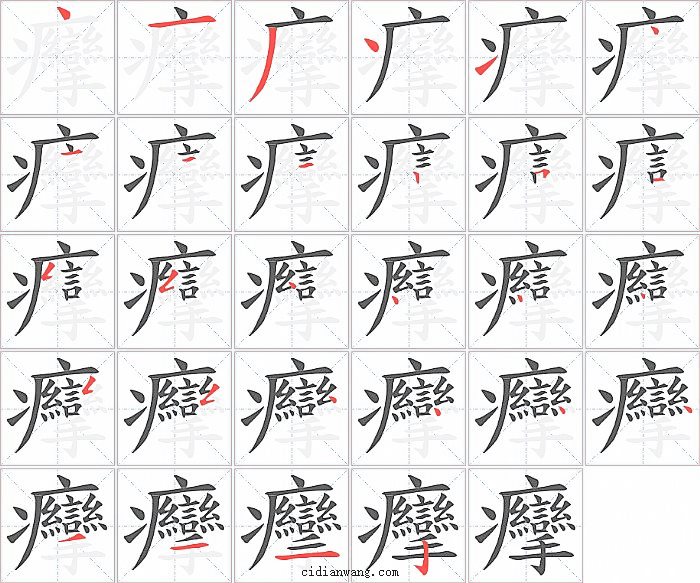 癴
cidianwang.com